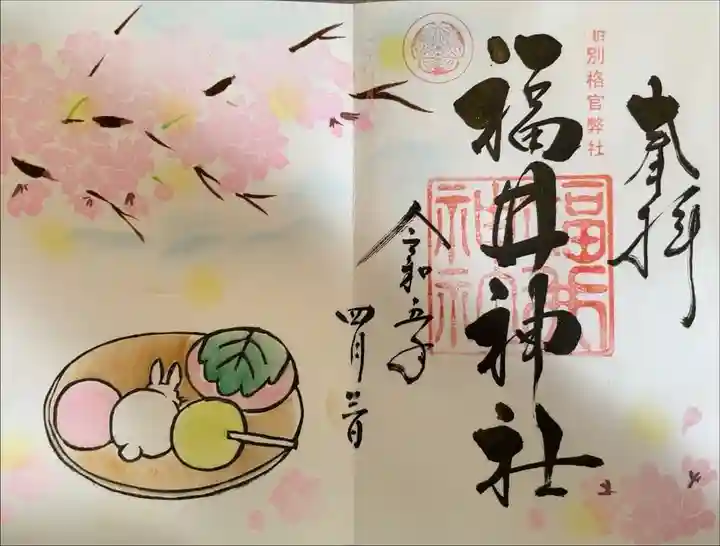 奉拝
旧別格官幣社
福井神社
福井神社
令和五年
四月三日